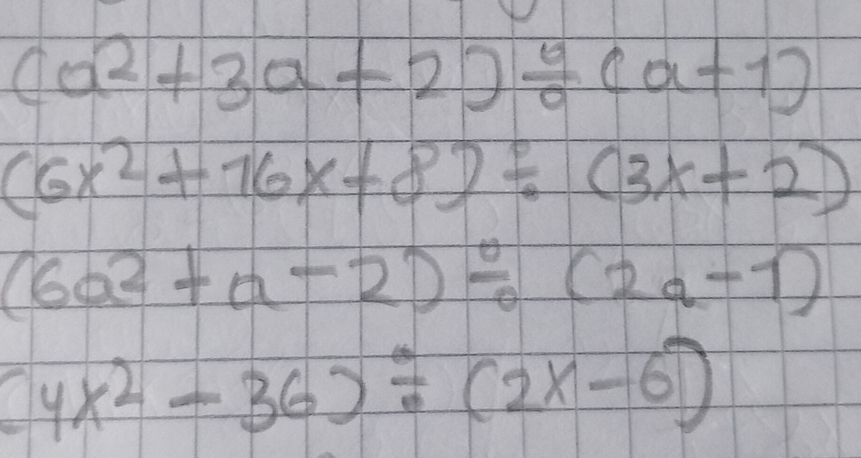 (a²+3a+2)÷(a+1)
(6x²+16x+8)÷(3x+2)
(6a²+a-2)÷(2a-1)
(4x²-36)÷(2x-6)